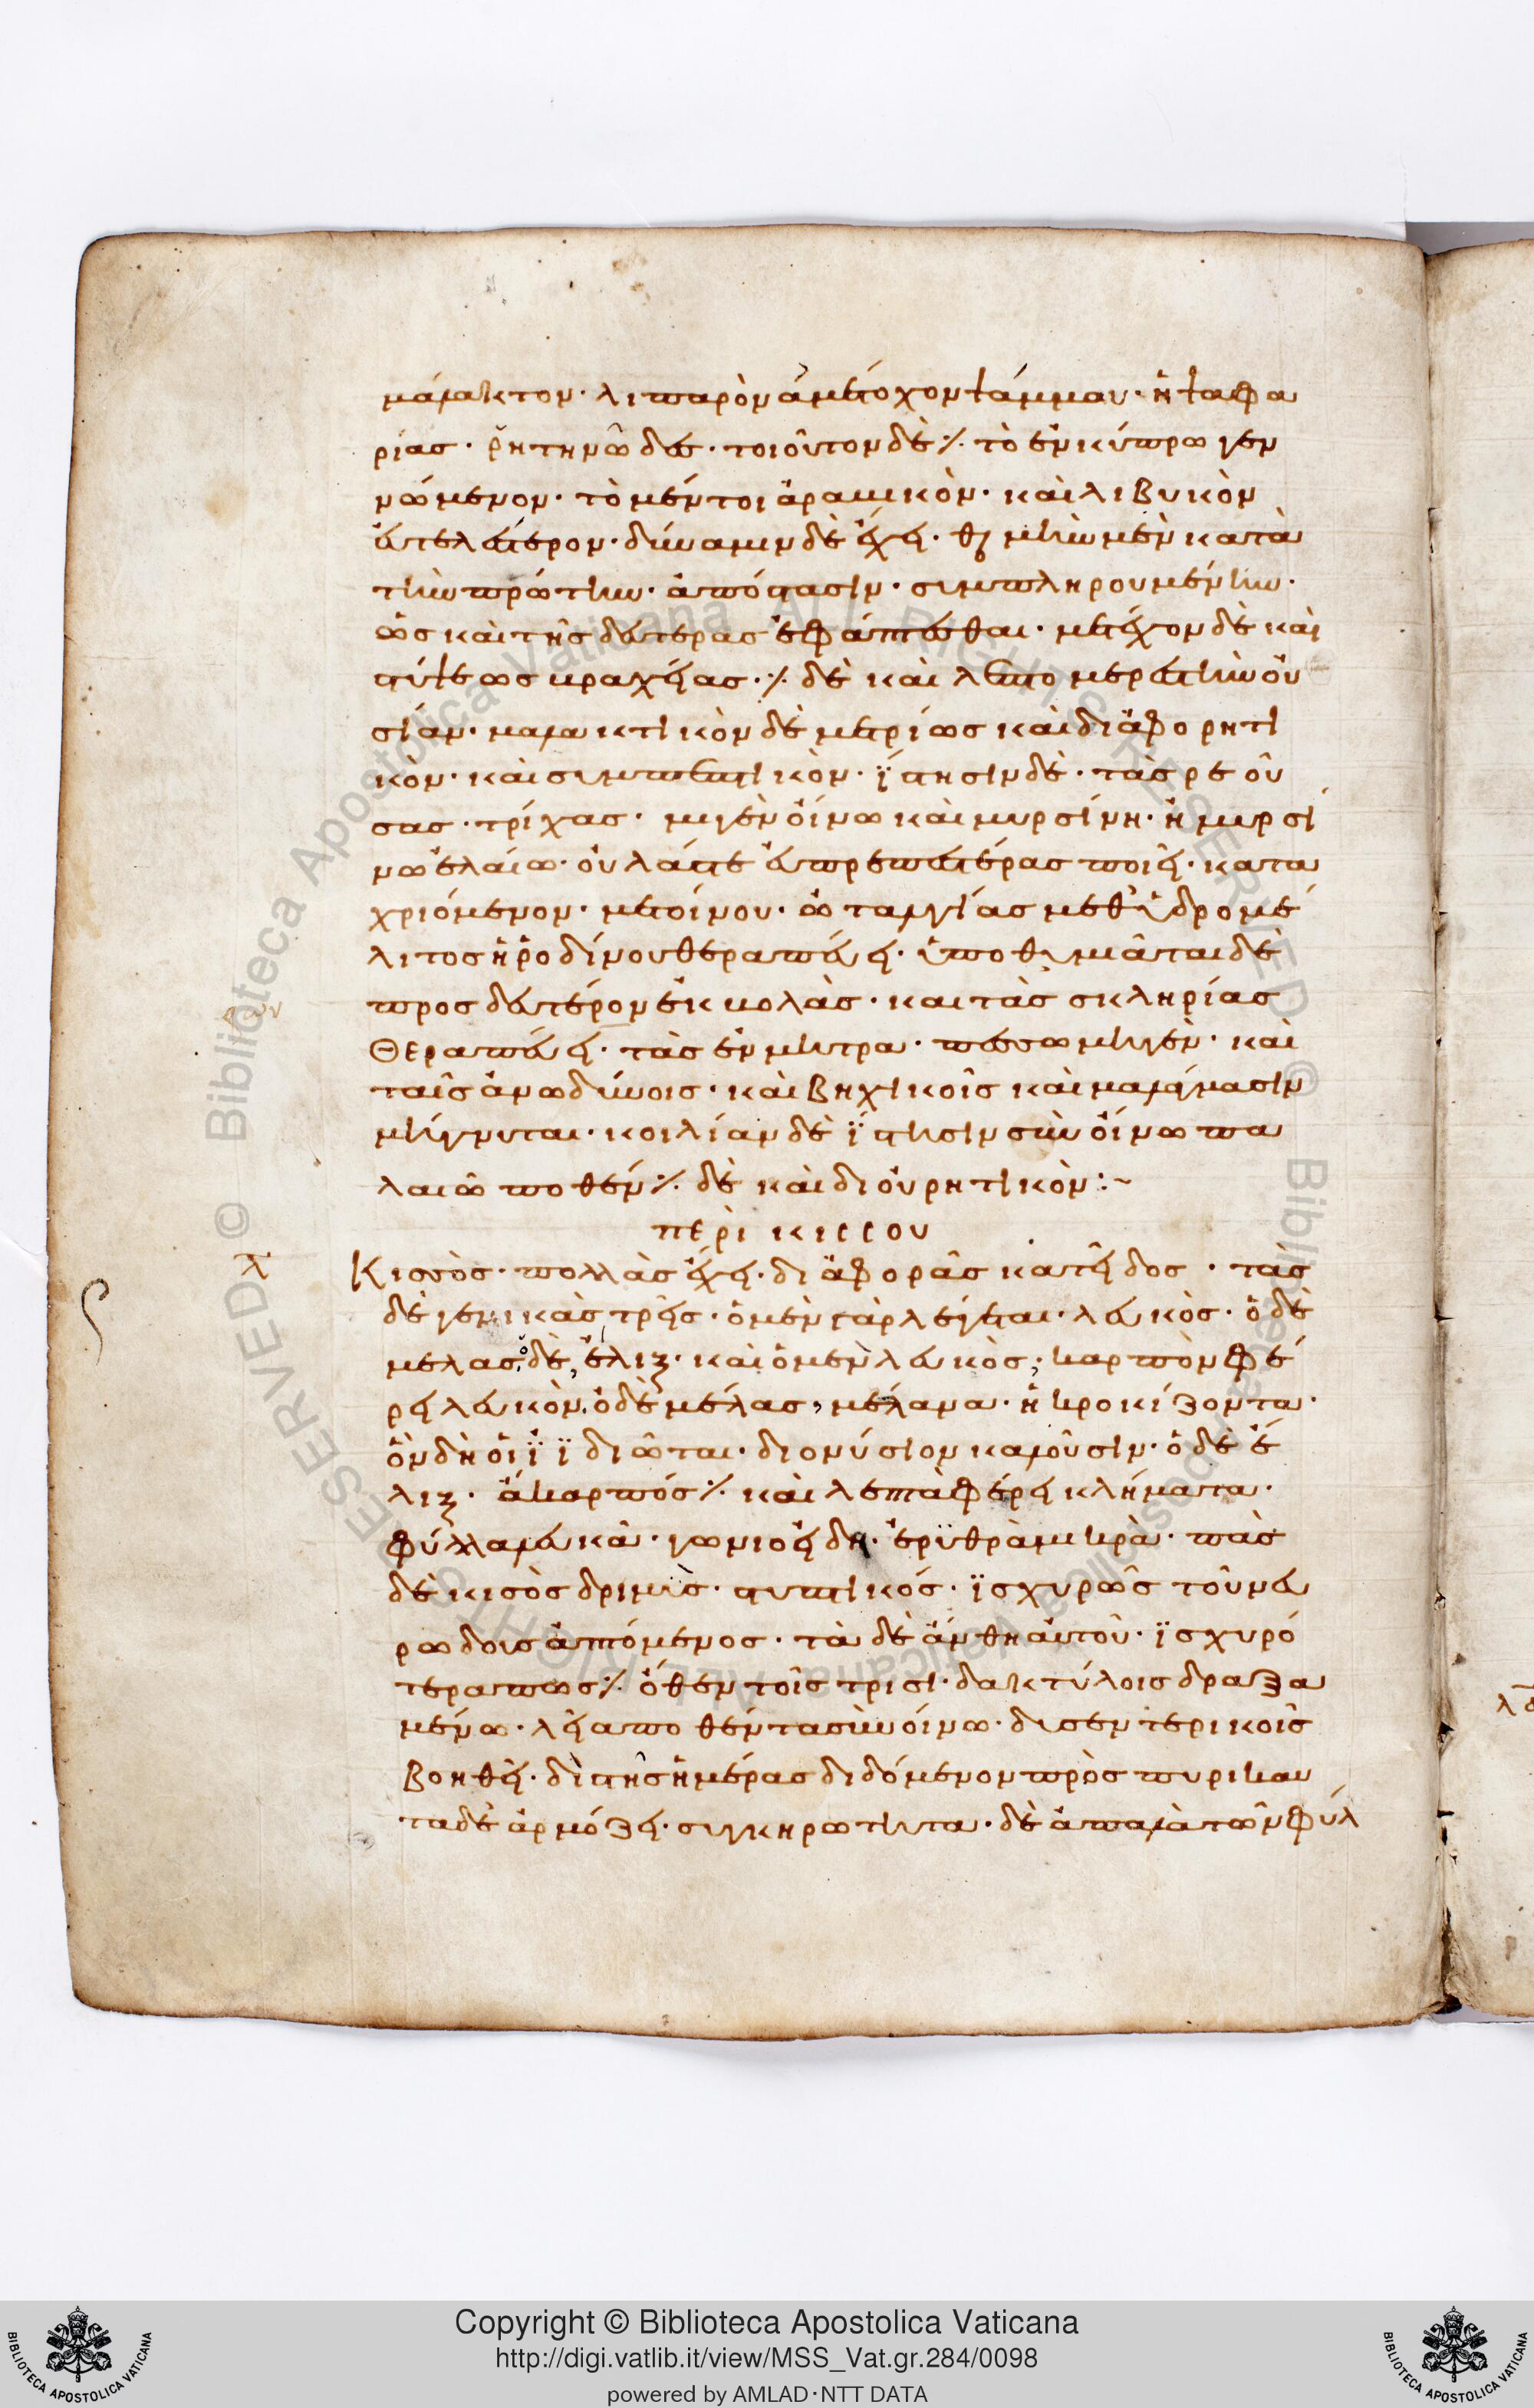 μάλακτον· λιπαρὸν ἀμέτοχον ψάμμου· ἢ ψαφα
ρίας· ῥητηνῶδες· τοιοῦτον δὲ ⁒ τὸ ἐν κύπρω γεν
νώμενον· τὸ μέντοι ἀραβικὸν· καὶ λιβυκὸν
εὐτελέστερον· δύναμιν δὲ ἔχει· θερμὴν μὲν κατὰ
τὴν πρώτην· ἀπόστασιν· συμπληρουμένην·
ὡς καὶ τῆς δευτέρας ἐφάπτεσθαι· μετέχον δὲ καὶ
στύψεως βραχείας· ⁒ δὲ καὶ λεπτομερὲς τὴν οὐ
σίαν· μαλακτικὸν δὲ μετρίως καὶ διαφορητι
κὸν· καὶ συμπεπτικὸν· ΐστησιν δὲ· τὰς ρεού
σας· τρίχας· μιγὲν οἴνω καὶ μυρσίνη· ἢ μυρσί
νω ἐλαίω· οὐλάς τε εὐπρεπεστέρας ποιεῖ· κατα
χριόμενον· μετ οἴνου· ὠταλγίας μεθ ὑδρομέ
λιτος ἢ ῥοδίνου θεραπεύει· ὑποθυμιᾶται δὲ
προς δευτέρον ἐκβολὰς· και τὰς σκληρίας
Θεραπεύει· τὰς ἐν μήτρα· πεσσω μηγὲν· καὶ
ταῖς ἀνωδύνοις· καὶ βηχικοῖς καὶ μαλάγμασιν
μήγνυται· κοιλίαν δὲ ΐστησιν σὺν οἴνω πα
λαιῶ ποθέν ⁒ δὲ καὶ διουρητικὸν:~
περι κιςςου
λ Κισσὸς· πολλὰς ἔχει· διαφορᾶς κατ εἶδος· τὰς
δὲ γενικὰς τρεῖς· ὁ μὲν γὰρ λέγεται· λευκὸς· ὁ δὲ
μελας· ὁ δὲ, ἕλιξ· καὶ ὁ μὲν λευκὸς, καρπὸν φέ
ρει λευκὸν, ὁ δὲ μέλας, μέλανα· ἢ κροκίζοντα·
ὃν δὴ οἱ ϊ ϊδιῶται· διονύσιον καλοῦσιν· ὁ δὲ ἕ
λιξ· ἄκαρπός ⁒ καὶ λεπτὰ φέρει κλήματα·
φύλλα λευκὰ· γωνιοείδη· ἐρυθρὰ μικρὰ· πὰς
δὲ κισὸς δριμὺς· στυπτικός· ϊσχυρῶς τοῦ νευ
ρώδους ἁπτόμενος· τὰ δὲ ἄνθη αὐτοῦ· ϊσχυρό
τερα πως ⁒ ὅθεν τοῖς τρισὶ· δακτύλοις δραξα
μένω· λεῖα ποθέντα σὺν οἴνω· δυσεντερικοῖς
βοηθεῖ· δὶς τῆς ἡμέρας διδόμενον πρὸς πυρικαυ
τα δὲ ἁρμόζει· συγκηρωτηντα· δὲ ἁπαλὰ τῶν φύλ
Copyright © Biblioteca Apostolica Vaticana
http://digi.vatlib.it/view/MSS_Vat.gr.284/0098
powered by AMLAD·NTT DATA
BIBLIOTECA APOSTOLICA VATICANA
BIBLIOTECA APOSTOLICA VATICANA